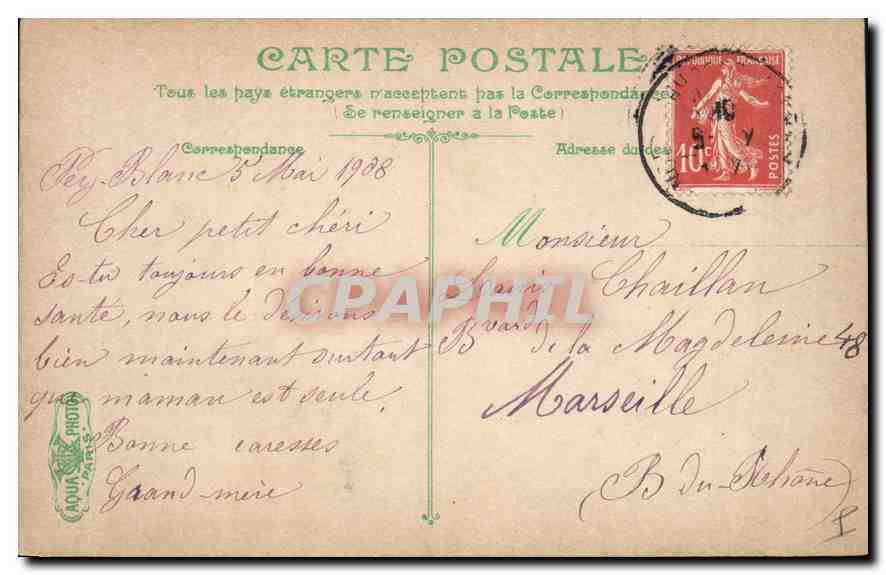 CARTE POSTALE
Tous les pays étrangers n'acceptent pas la Correspondance
(Se renseigner à la Poste)
Correspondance
Adresse du des
RÉPUBLIQUE FRANÇAISE
10c
POSTES
Pey-Blanc 5 Mai 1908
Cher petit chéri
Es-tu toujours en bonne
santé, nous le désirons
bien maintenant surtout
que maman est seule.
Bonne caresses
Grand-mère
Monsieur
Louis Chaillan
Bvard de la Magdeleine 48
Marseille
(B du-Rhône)
AQUA PHOTO
PARIS
CPAPHIL